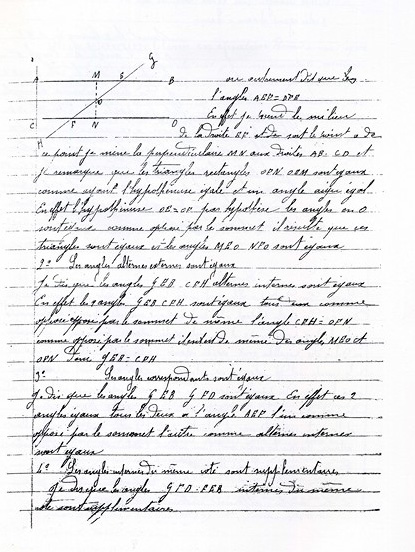 G
A M E B
ou autrement dit que les
O
l'angles AEF = DFE
C F N D
En effet je prend le milieu
H
de la droite EF et de soit le point o de
ce point je mène la perpendiculaire MN aux droites AB. CD et
je remarque que les triangles rectangles OFN OEM sont égaux
comme ayant l'hypothénuse égale et un angle aigu égal.
En effet l'hypothénuse OE=OF par hypothèse les angles en O
sont égaux comme opposé par le sommet il résulte que ces
triangles sont égaux et les angles MEO NFO sont égaux
2º Les angles alternes externes sont égaux
Je dis que les angles GEB CFH alternes internes sont égaux
En effet les angles GEB CFH sont égaux tous un comme
opposé par le sommet de même l'angle CFH = OFN
comme opposé par le sommet de même des angles MEO et
OFN Donc GEB = CFH
3º Les angles correspondants sont égaux
je dis que les angles GEB GFD sont égaux En effet ces 2
angles égaux tous les deux à l'angle AEF l'un comme
opposé par le sommet l'autre comme alternes internes
sont égaux
4º Les angles internes de même coté sont supplémentaires
Je dis que les angles GFD. FEB internes du même
coté sont supplémentaires